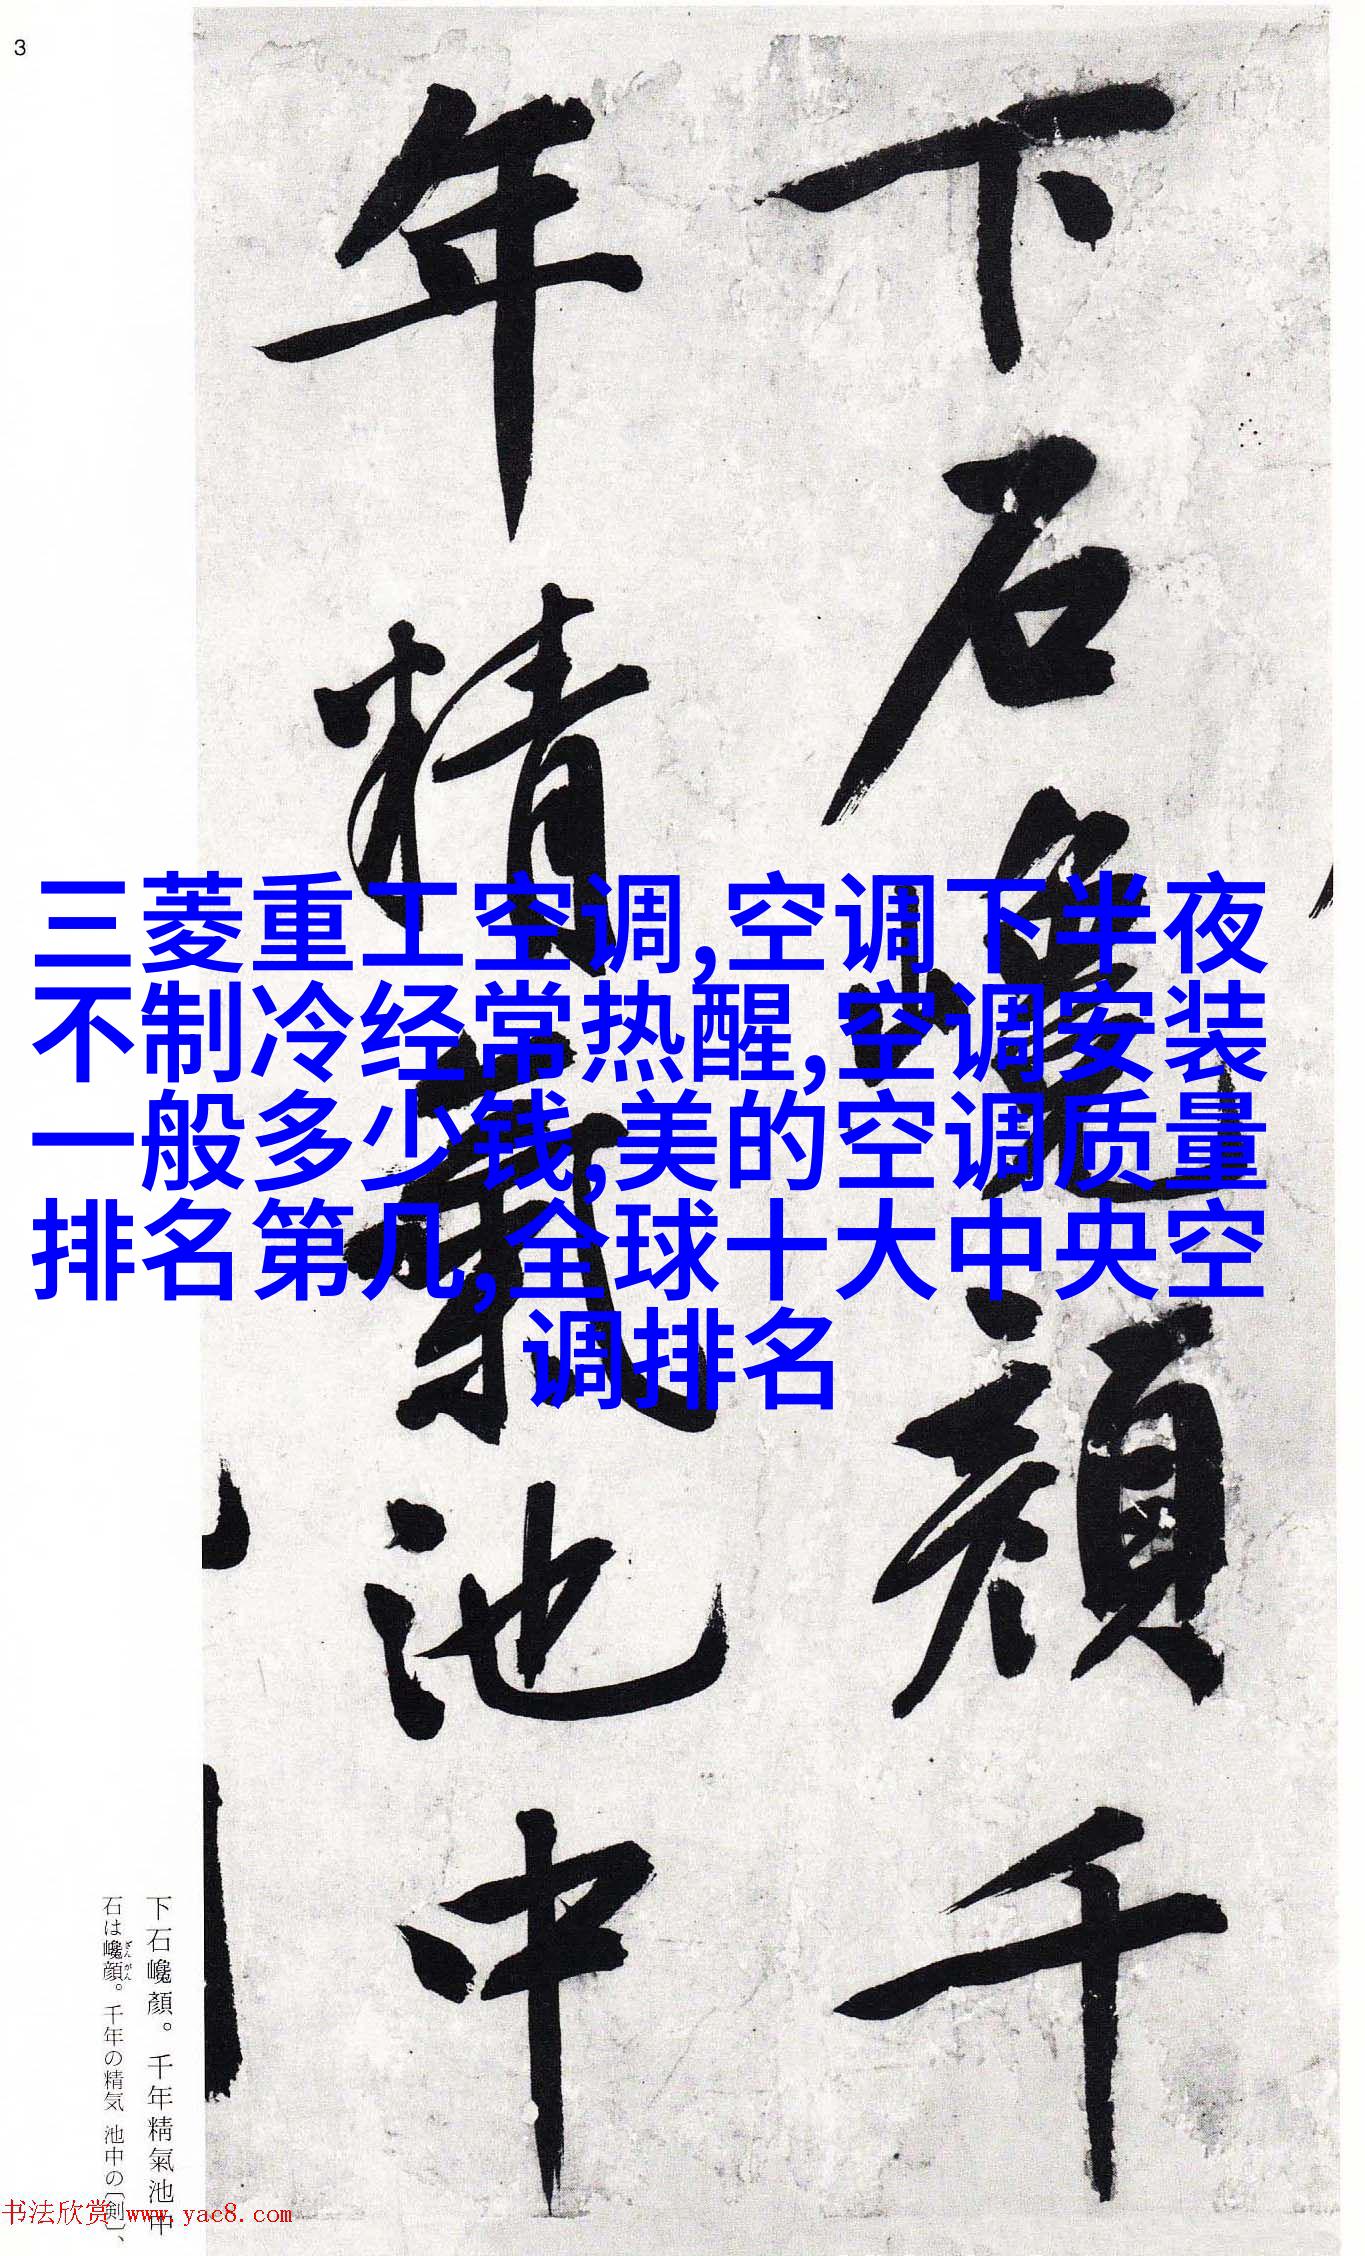 3
下石巉顔千
年精氣池中
三菱重工空调,空调下半夜
不制冷经常热醒,空调安装
一般多少钱,美的空调质量
排名第几,全球十大中央空
调排名
下石巉顏。千年精氣池中
石は巉顔。千年の精気 池中の〔剣〕、
ざんがん
书法欣赏 www.yac8.com